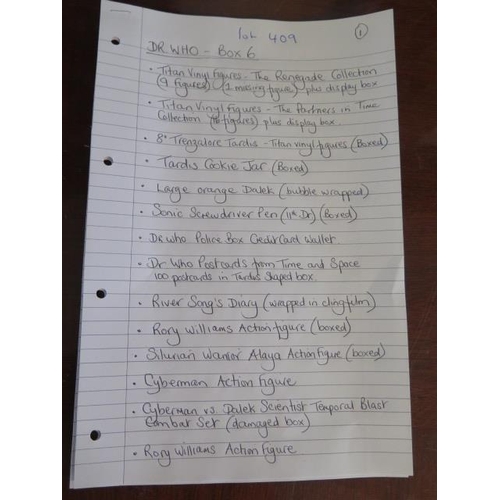 lot 409
1
DR WHO - Box 6
• Titan Vinyl Figures - The Renegade Collection
(9 figures) (2 missing figure) plus display box
• Titan Vinyl Figures - The Partners in Time
Collection (figures) plus display box.
• 8" Trenzalore Tardis - Titan vinyl figures (Boxed)
• Tardis Cookie Jar (Boxed)
• Large orange Dalek (bubble wrapped)
• Sonic Screwdriver Pen (11th Dr) (Boxed)
• Dr Who Police Box Credit Card Wallet.
• Dr Who Postcards from Time and Space
100 postcards in Tardis shaped box.
• River Song's Diary (wrapped in clingfilm)
• Rory Williams Action figure (boxed)
• Silurian Warrior Alaya Action Figure (boxed)
• Cyberman Action Figure
• Cyberman vs. Dalek Scientist Temporal Blast
Combat Set (damaged box)
• Rory Williams Action Figure